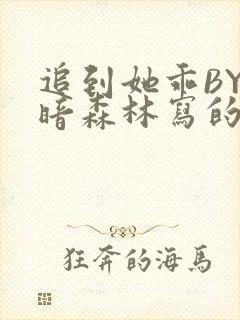 追到她乖BY
暗森林寫的
狂奔的海馬